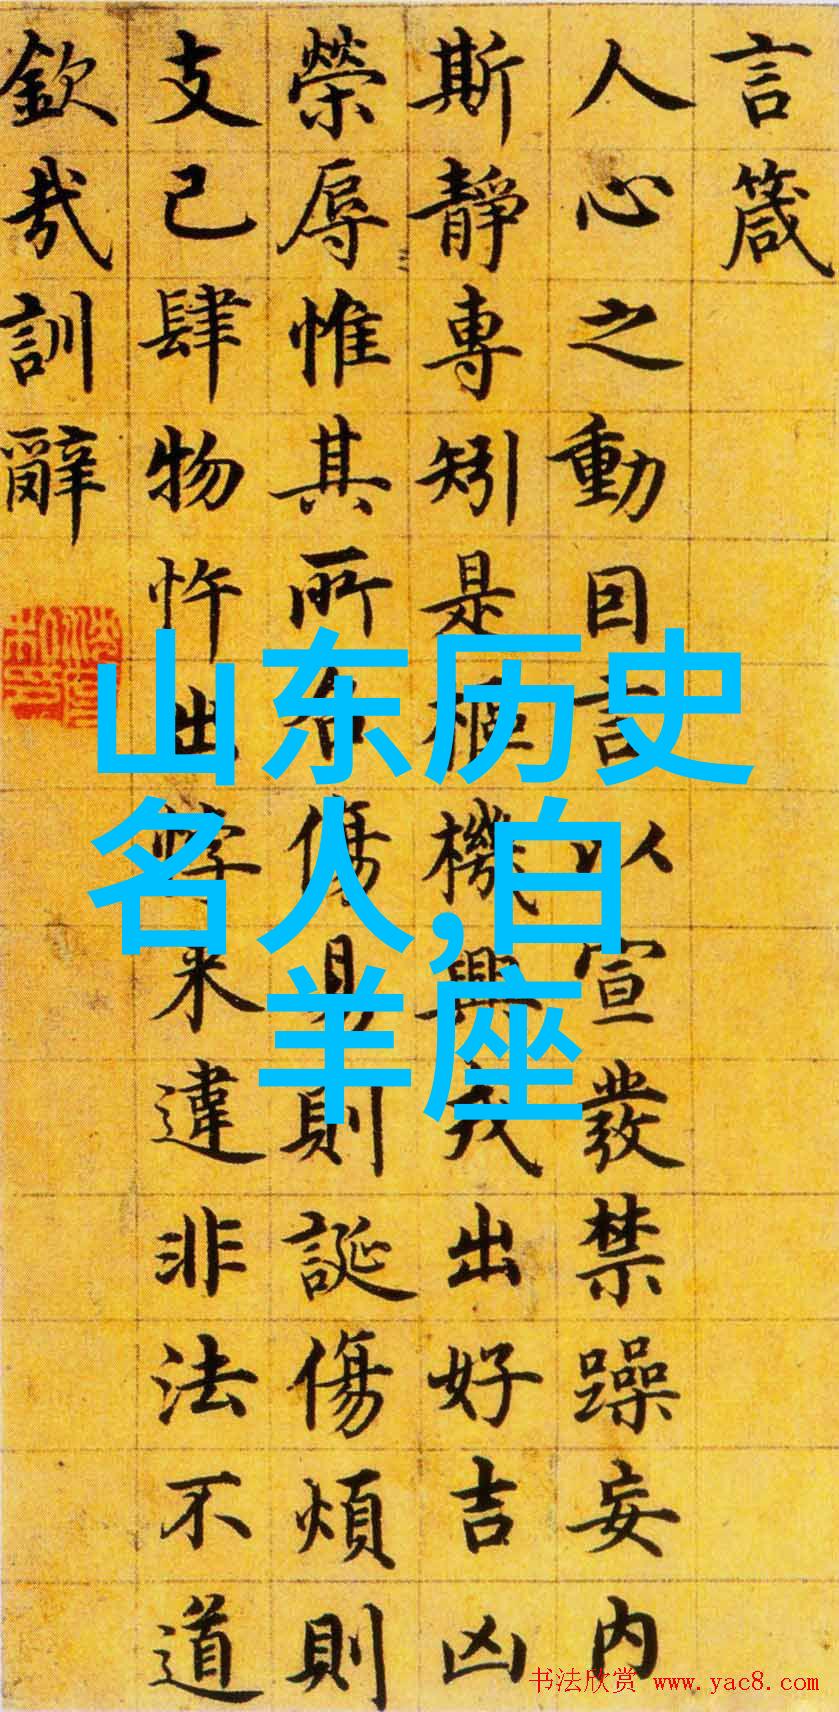 言箴
人心之動因言以宣發禁躁妄内
斯靜專矧是樞機興戎出好吉凶
榮辱惟其所召傷易則誕傷煩則
支己肆物忤出悖来違非法不道
欽哉訓辭
山东历史
名人,白
羊座
书法欣赏 www.yac8.com